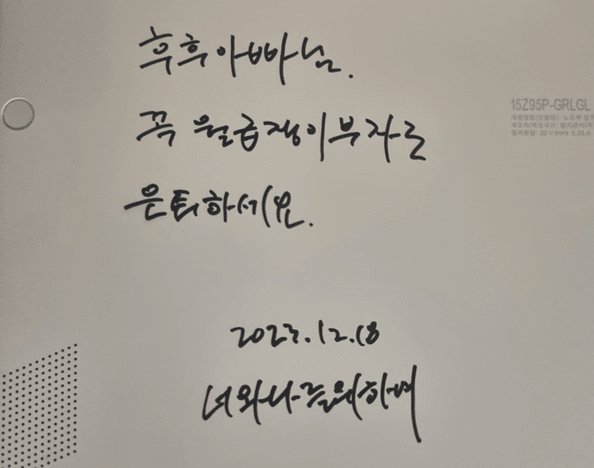 후후아빠님.
꼭 월급쟁이부자로
은퇴하세요.
15Z95P-GRLGL
2023.12.18
너와나를위하여